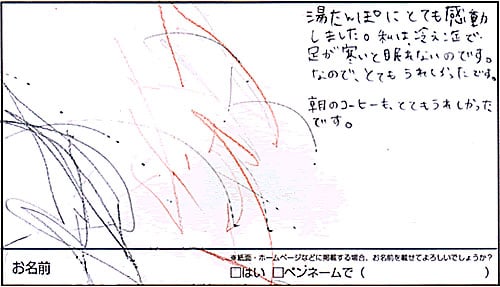 湯たんぽにとても感動
しました。私は、冷え症で
足が寒いと眠れないのです。
なので、とてもうれしかったです。
朝のコーヒーも、とてもうれしかった
です。
お名前
※紙面・ホームページなどに掲載する場合、お名前を載せてよろしいでしょうか?
□はい □ペンネームで( )